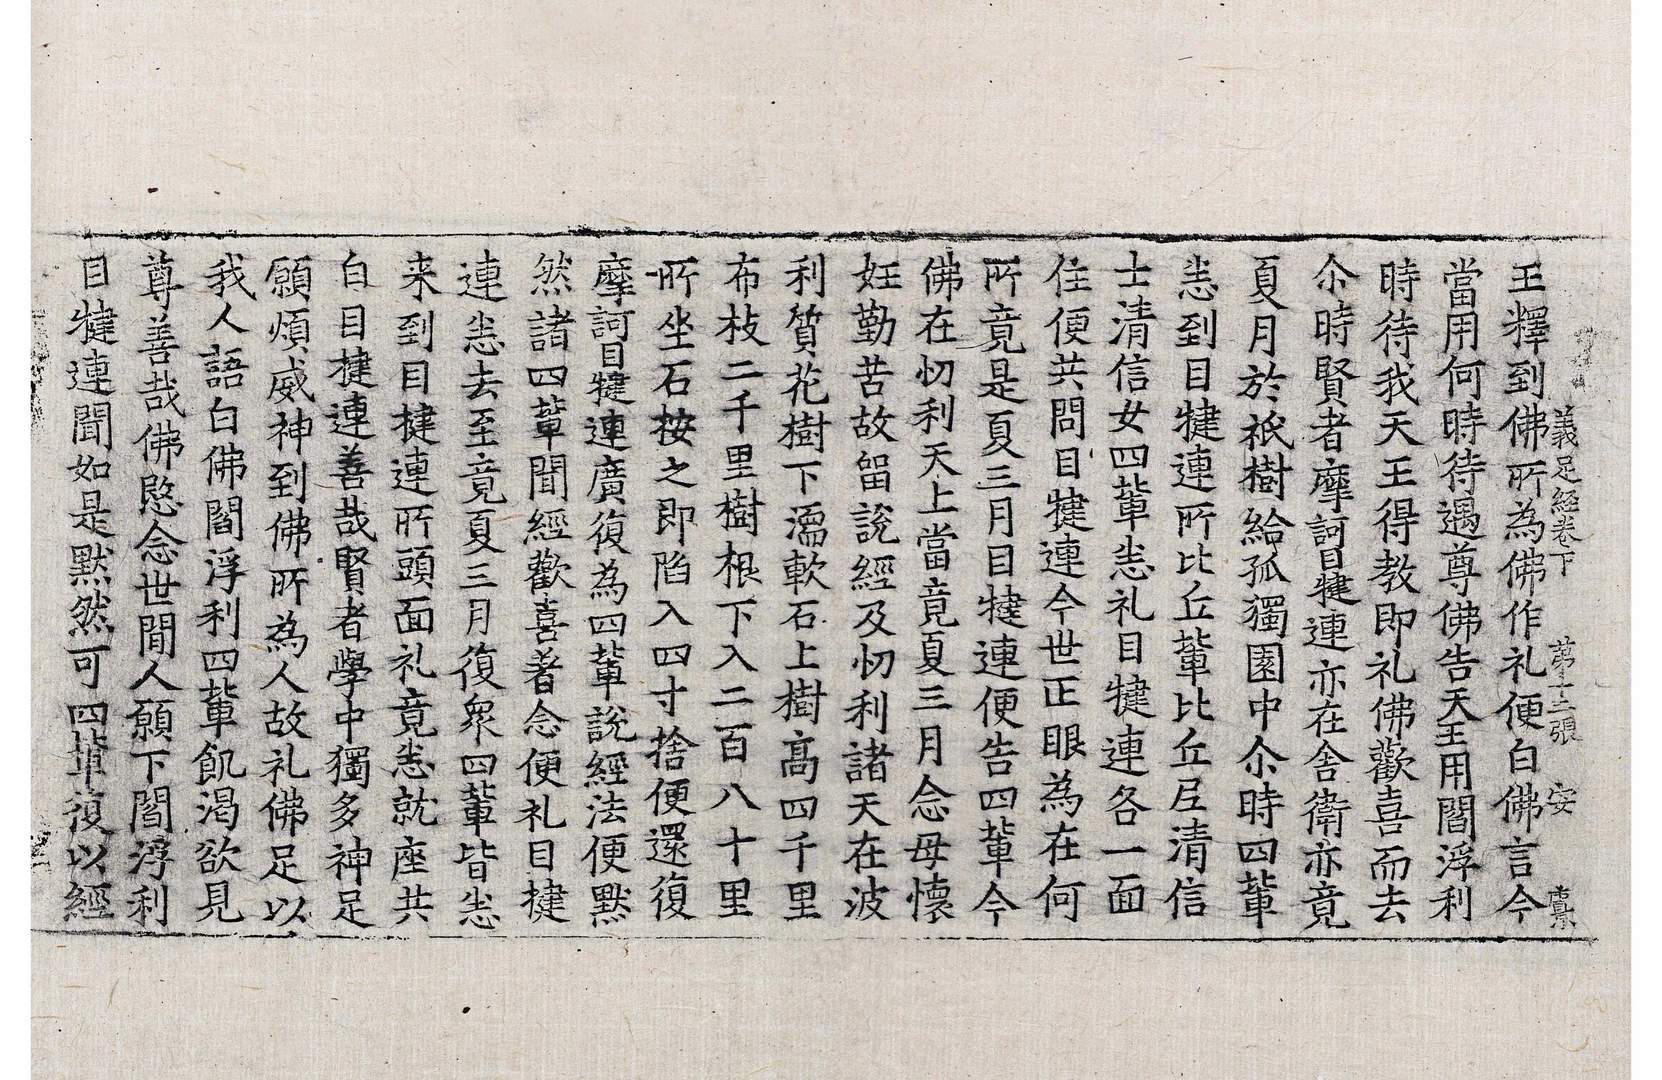 義足經卷下 第十三張 安
王釋到佛所為佛作礼便白佛言今
當用何時待遇尊佛告天王用閻浮利
時待我天王得教即礼佛歡喜而去
尒時賢者摩訶目犍連亦在舍衛亦竟
夏月於祇樹給孤獨園中尒時四軰
悉到目犍連所比丘軰比丘尼清信
士清信女四軰悉礼目犍連各一面
住便共問目犍連今世正眼為在何
所竟是夏三月目犍連便告四軰今
佛在忉利天上當竟夏三月念母懷
妊勤苦故留說經及忉利諸天在波
利質花樹下濡軟石上樹高四千里
布枝二千里樹根下入二百八十里
所坐石按之即陷入四寸捨便還復
摩訶目犍連廣復為四軰說經法便默
然諸四軰聞經歡喜著念便礼目揵
連悉去至竟夏三月復眾四軰皆悉
来到目揵連所頭面礼竟悉就座共
白目揵連善哉賢者學中獨多神足
願煩威神到佛所為人故礼佛足以
我人語白佛閻浮利四軰飢渴欲見
尊善哉佛愍念世間人願下閻浮利
目犍連聞如是默然可四軰復以經